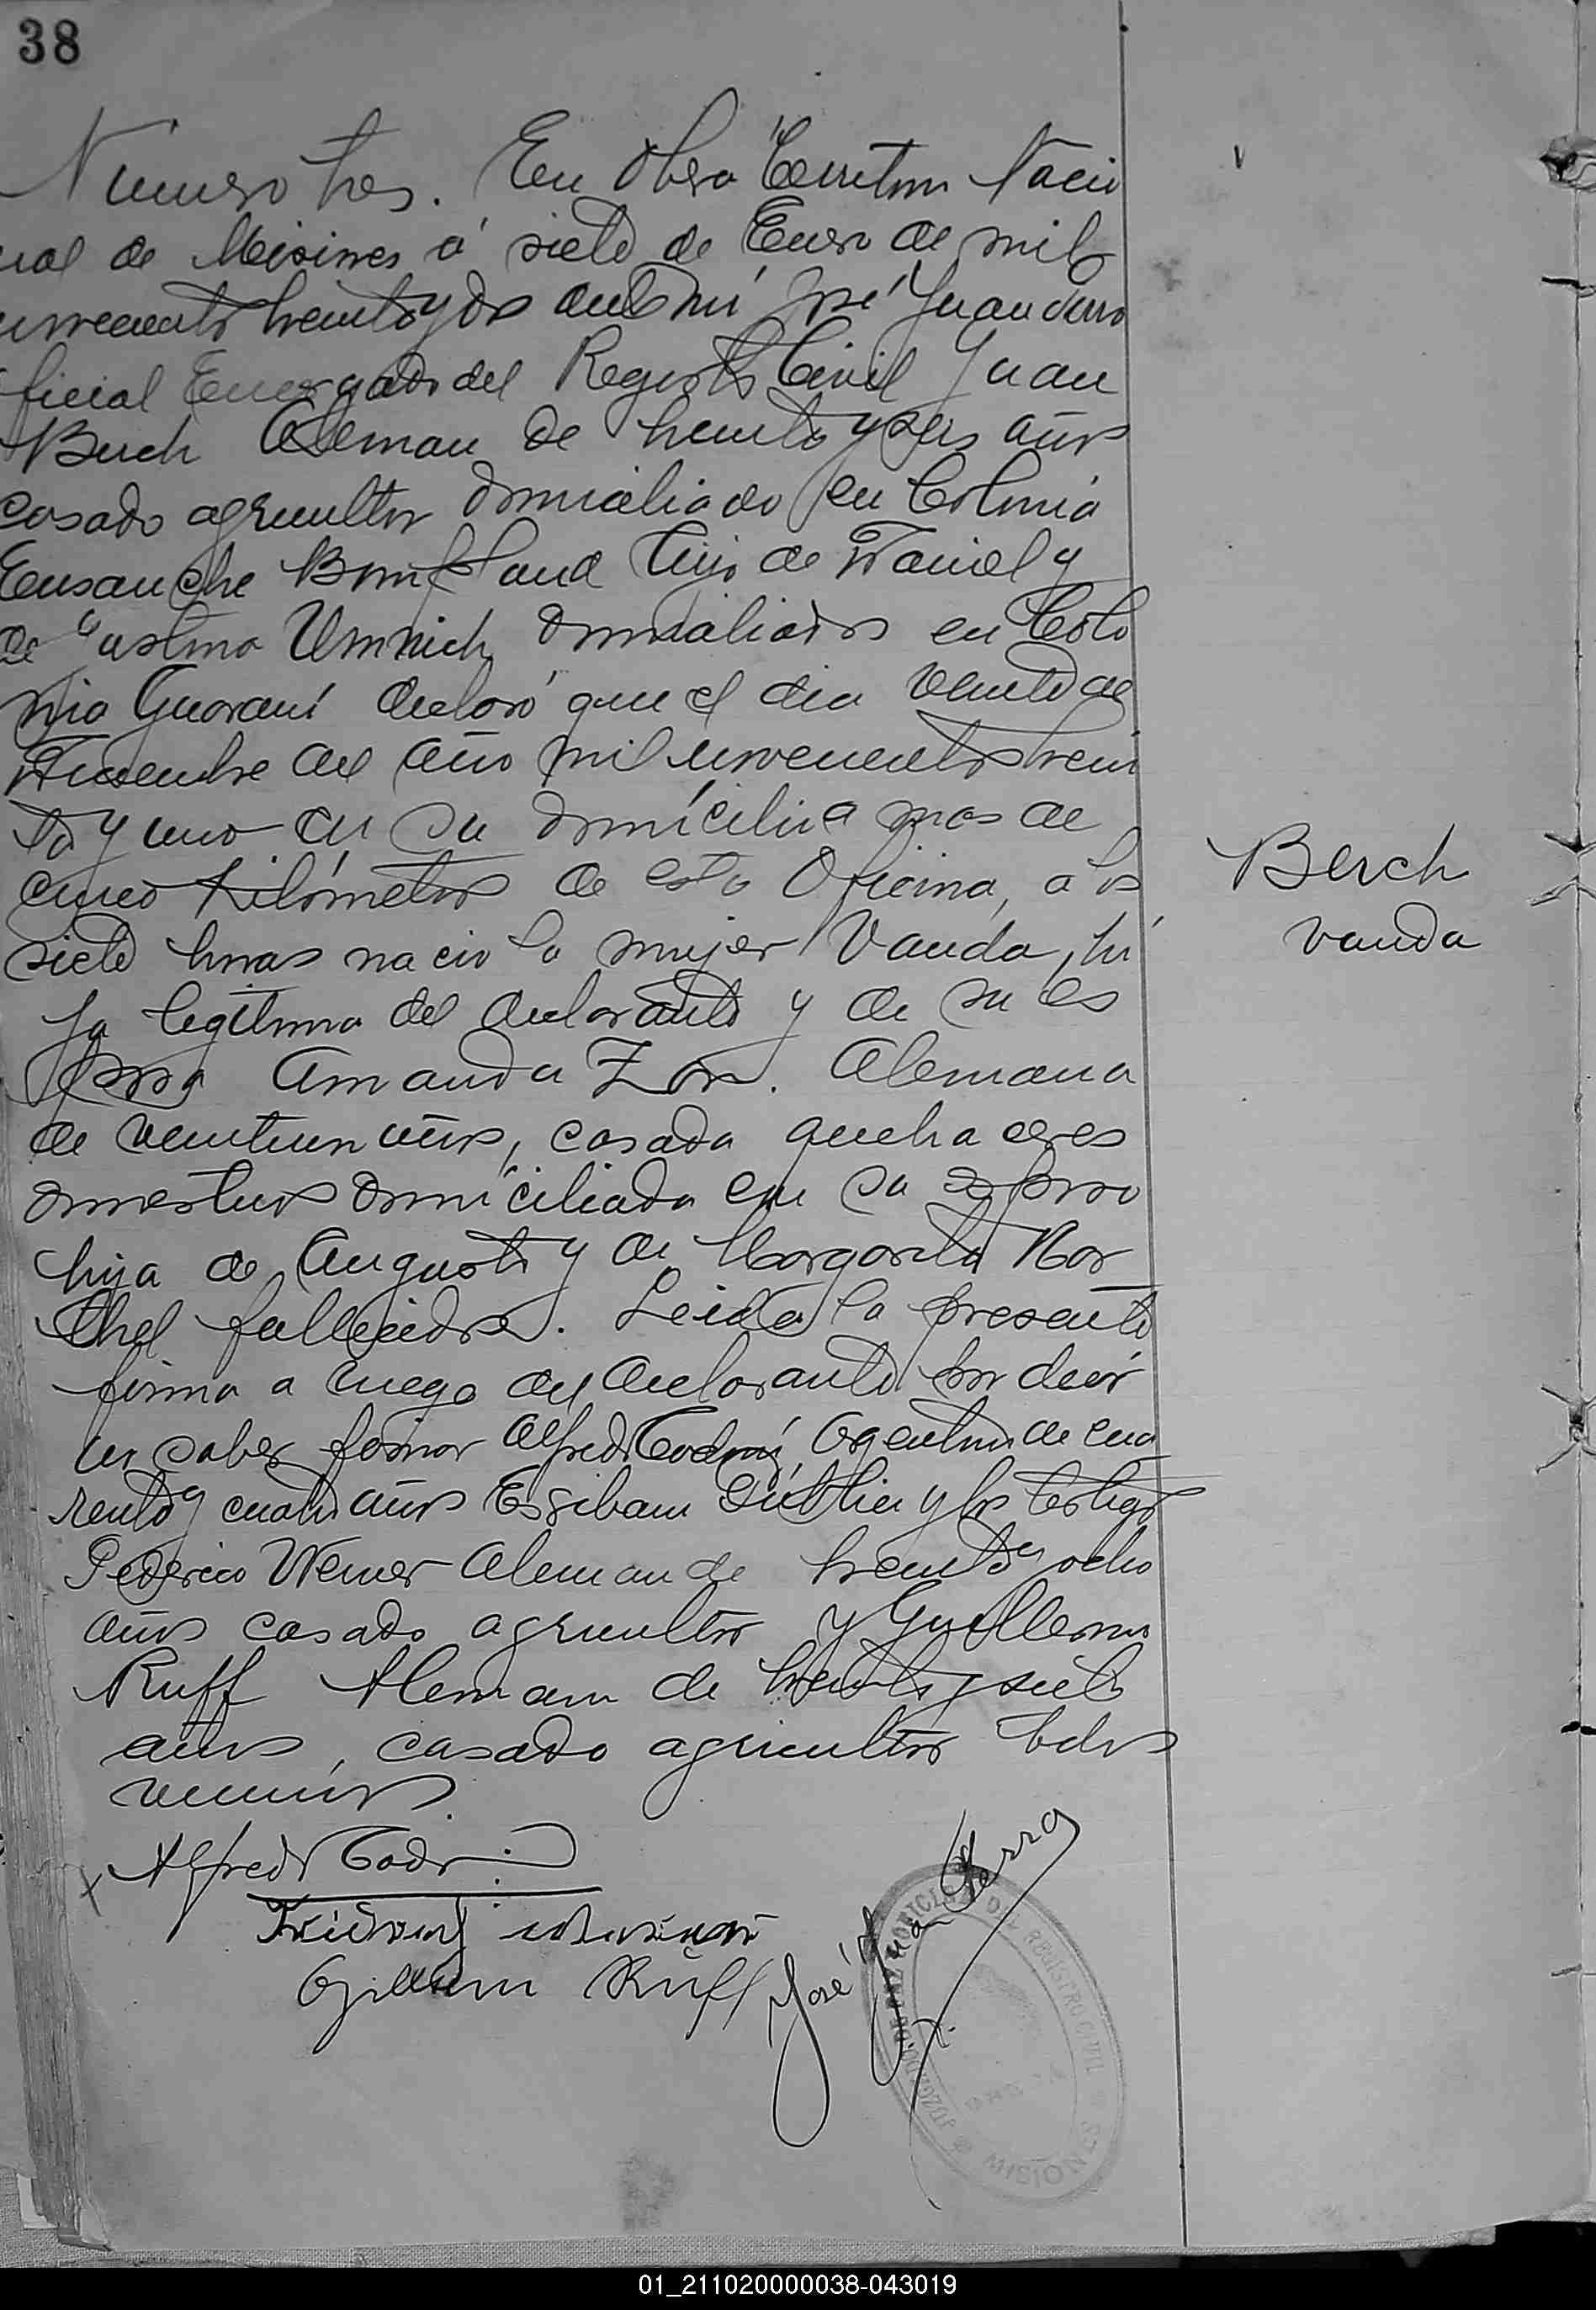 38
Numero tres. En Obera Territorio Nacio
nal de Misiones á siete de Enero de mil
novecientos treinta y dos ante mi José Juan Serra
ficial Encargado del Registro Civil Juan
Berch Aleman de treinta y seis años
casado agricultor domiciliado en Colonia
Ensanche Bompland hijo de Daniel y
de Umnich domiciliados en Colo
nia Guaraní declaró que el dia veinte de
Diciembre del año mil novecientos trein
ta y uno en su domicilio a mas de
cinco kilómetros de esta Oficina, a las
siete horas nacio la mujer Vanda, hi
ja legitima del declarante y de su es
posa Amanda Zon. Alemana
de veintiun años, casada quehaceres
domesticos domiciliada con su esposo
hija de Augusto y de Margarita Kor
thel fallecidos. Leida la presente
firma a ruego del declarante por decir
no saber firmar Alfredo Argentino de cua
renta y cuatro años Escribano Público y los testigos
Federico Werner Aleman de treinta y ocho
años casado agricultor y Guillermo
Ruff Aleman de treinta y siete
años, casado agricultor todos
vecinos.
Berch
Vanda
x Alfredo
Ruff
José Juan Serra
REGISTRO CIVIL
MISIONES
01_211020000038-043019